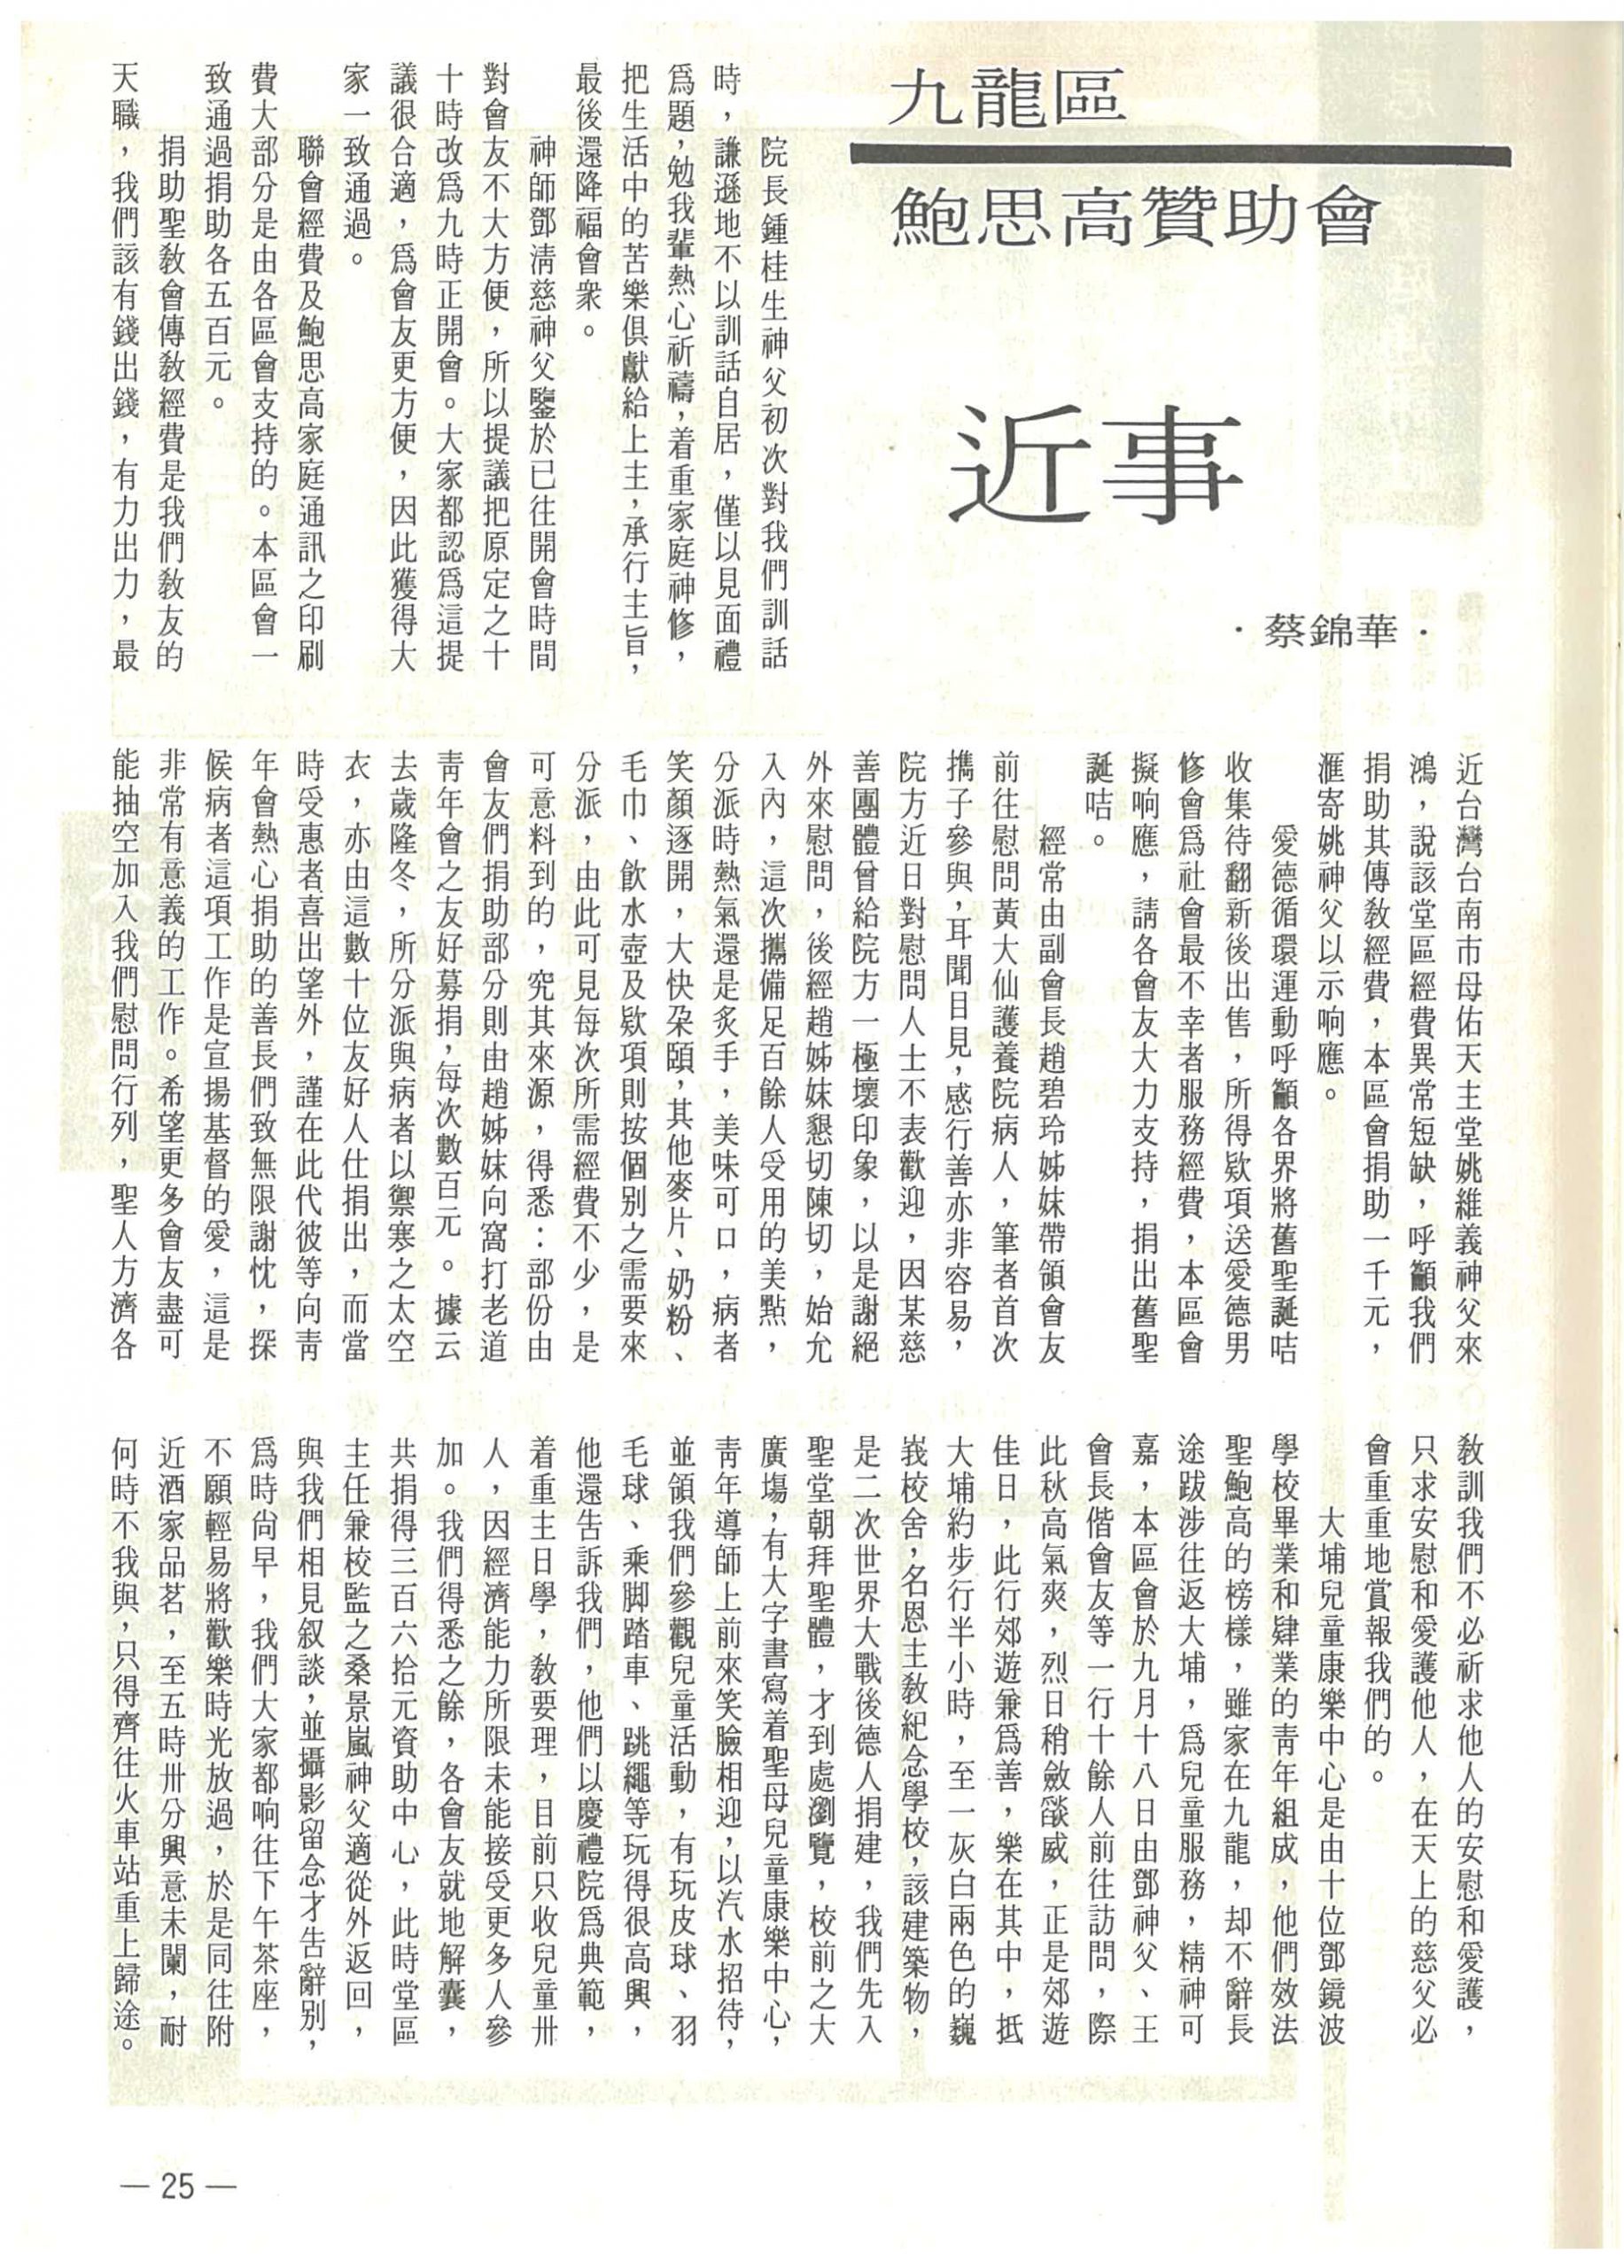 九龍區
鮑思高贊助會
近事
·蔡錦華·
院長鍾桂生神父初次對我們訓話
時，謙遜地不以訓話自居，僅以見面禮
爲題，勉我輩熱心祈禱，着重家庭神修，
把生活中的苦樂俱獻給上主，承行主旨，
最後還降福會衆。
神師鄧淸慈神父鑒於已往開會時間
對會友不大方便，所以提議把原定之十
十時改爲九時正開會。大家都認爲這提
議很合適，爲會友更方便，因此獲得大
家一致通過。
聯會經費及鮑思高家庭通訊之印刷
費大部分是由各區會支持的。本區會一
致通過捐助各五百元。
捐助聖敎會傳敎經費是我們敎友的
天職，我們該有錢出錢，有力出力，最
近台灣台南市母佑天主堂姚維義神父來
鴻，說該堂區經費異常短缺，呼籲我們
捐助其傳敎經費，本區會捐助一千元，
滙寄姚神父以示响應。
愛德循環運動呼籲各界將舊聖誕咭
收集待翻新後出售，所得欵項送愛德男
修會爲社會最不幸者服務經費，本區會
擬响應，請各會友大力支持，捐出舊聖
誕咭。
經常由副會長趙碧玲姊妹帶領會友
前往慰問黃大仙護養院病人，筆者首次
攜子參與，耳聞目見，感行善亦非容易，
院方近日對慰問人士不表歡迎，因某慈
善團體曾給院方一極壞印象，以是謝絕
外來慰問，後經趙姊妹懇切陳切，始允
入內，這次攜備足百餘人受用的美點，
分派時熱氣還是炙手，美味可口，病者
笑顏逐開，大快朶頤，其他麥片、奶粉、
毛巾、飲水壺及欵項則按個別之需要來
分派，由此可見每次所需經費不少，是
可意料到的，究其來源，得悉：部份由
會友們捐助部分則由趙姊妹向窩打老道
靑年會之友好募捐，每次數百元。據云
去歲隆冬，所分派與病者以禦寒之太空
衣，亦由這數十位友好人仕捐出，而當
時受惠者喜出望外，謹在此代彼等向靑
年會熱心捐助的善長們致無限謝忱，探
候病者這項工作是宣揚基督的愛，這是
非常有意義的工作。希望更多會友盡可
能抽空加入我們慰問行列，聖人方濟各
敎訓我們不必祈求他人的安慰和愛護，
只求安慰和愛護他人，在天上的慈父必
會重重地賞報我們的。
大埔兒童康樂中心是由十位鄧鏡波
學校畢業和肄業的靑年組成，他們效法
聖鮑高的榜樣，雖家在九龍，却不辭長
途跋涉往返大埔，爲兒童服務，精神可
嘉，本區會於九月十八日由鄧神父、王
會長偕會友等一行十餘人前往訪問，際
此秋高氣爽，烈日稍斂燄威，正是郊遊
佳日，此行郊遊兼爲善，樂在其中，抵
大埔約步行半小時，至一灰白兩色的巍
峩校舍，名恩主敎紀念學校，該建築物，
是二次世界大戰後德人捐建，我們先入
聖堂朝拜聖體，才到處瀏覽，校前之大
廣塲，有大字書寫着聖母兒童康樂中心，
靑年導師上前來笑臉相迎，以汽水招待，
並領我們參觀兒童活動，有玩皮球、羽
毛球、乘脚踏車、跳繩等玩得很高興，
他還告訴我們，他們以慶禮院爲典範，
着重主日學，敎要理，目前只收兒童卅
人，因經濟能力所限未能接受更多人參
加。我們得悉之餘，各會友就地解囊，
共捐得三百六拾元資助中心，此時堂區
主任兼校監之桑景嵐神父適從外返回，
與我們相見叙談，並攝影留念才吿辭別，
爲時尙早，我們大家都响往下午茶座，
不願輕易將歡樂時光放過，於是同往附
近酒家品茗，至五時卅分興意未闌，耐
何時不我與，只得齊往火車站重上歸途。
— 25 —